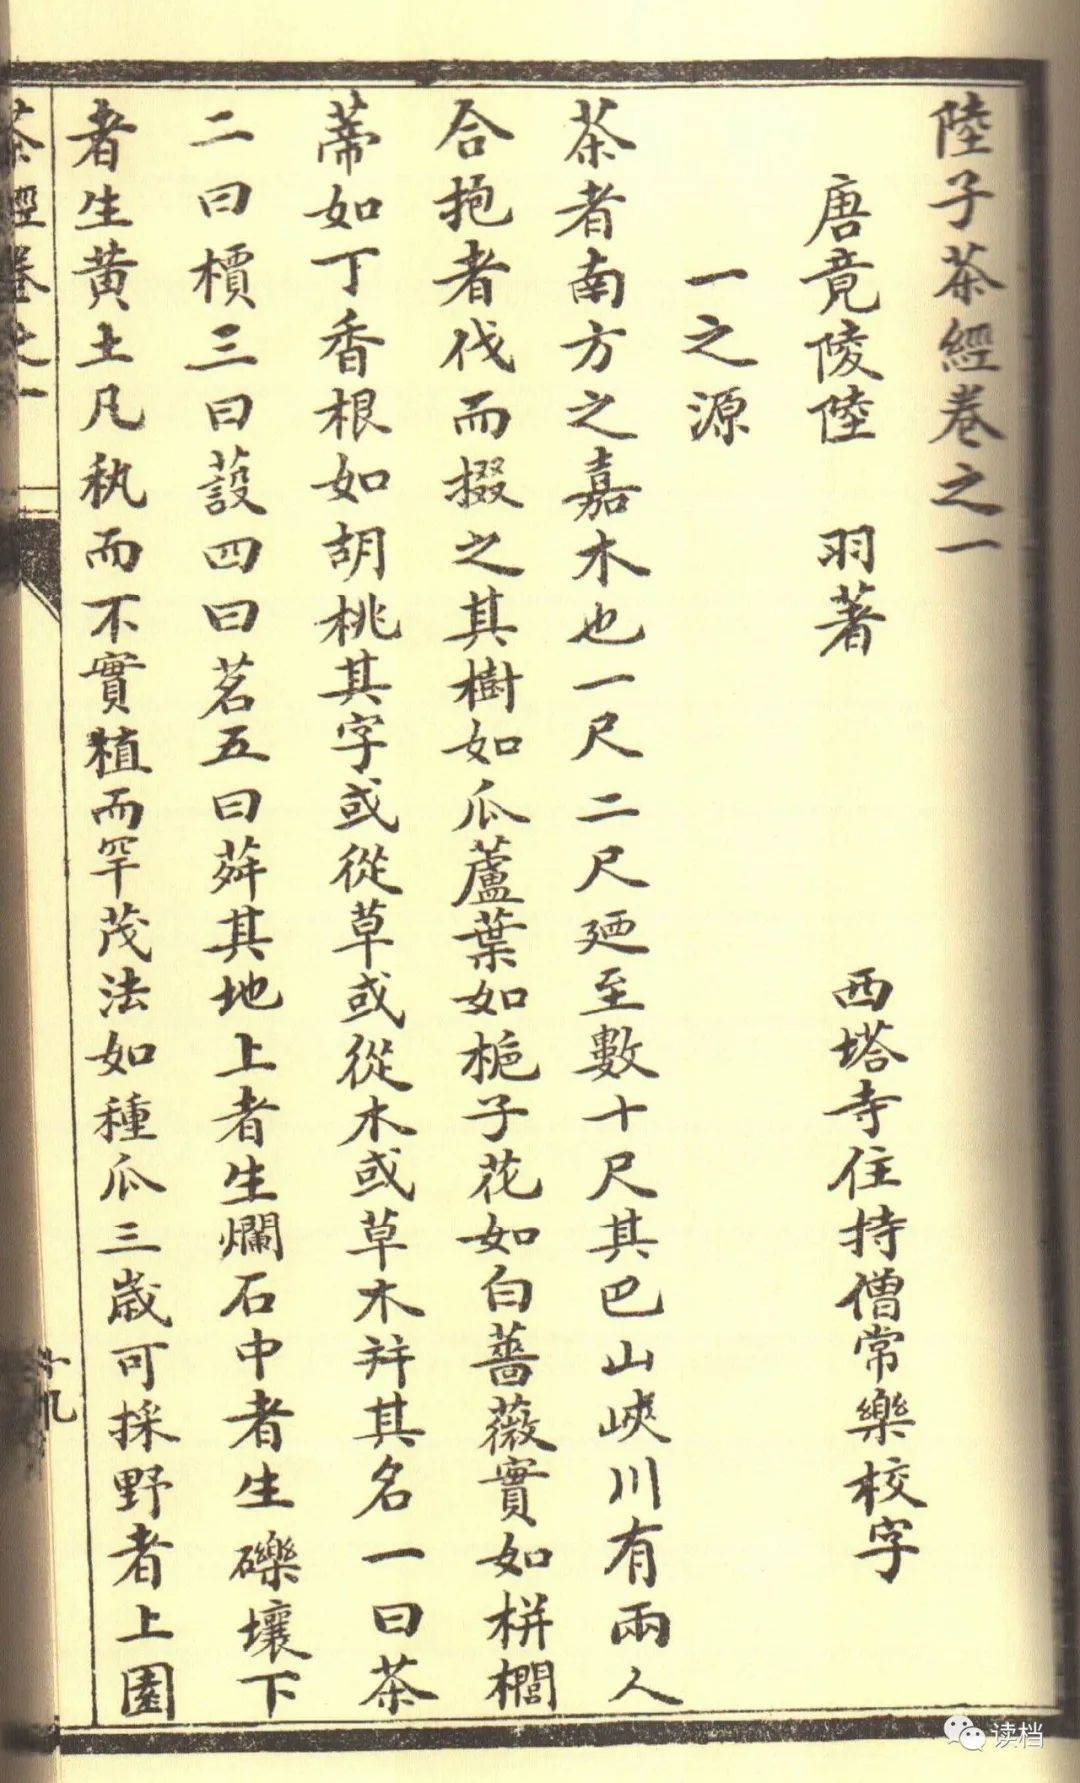 陸子茶經卷之一
唐竟陵陸 羽著 西塔寺住持僧常樂校字
一之源
茶者南方之嘉木也一尺二尺廼至數十尺其巴山峽川有兩人
合抱者伐而掇之其樹如瓜蘆葉如梔子花如白薔薇實如栟櫚
蒂如丁香根如胡桃其字或從草或從木或草木并其名一曰茶
二曰檟三曰蔎四曰茗五曰荈其地上者生爛石中者生礫壤下
者生黄土凡執而不實植而罕茂法如種瓜三歲可採野者上園
茶經卷之一
读档